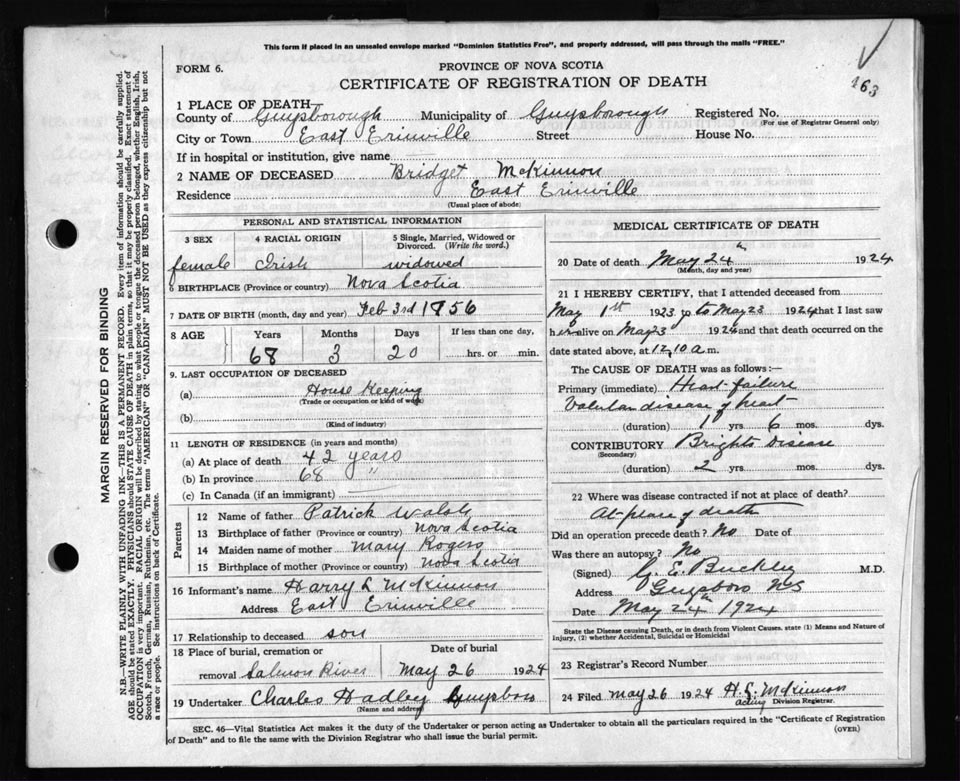 This form if placed in an unsealed envelope marked "Dominion Statistics Free", and properly addressed, will pass through the mails "FREE."
FORM 6.
PROVINCE OF NOVA SCOTIA
CERTIFICATE OF REGISTRATION OF DEATH
463
1 PLACE OF DEATH
County of Guysborough Municipality of Guysborough Registered No.
(For use of Registrar General only)
City or Town East Erinville Street House No.
If in hospital or institution, give name
2 NAME OF DECEASED Bridget McKinnon
Residence East Erinville
(Usual place of abode)
PERSONAL AND STATISTICAL INFORMATION
3 SEX 4 RACIAL ORIGIN 5 Single, Married, Widowed or Divorced. (Write the word.)
female Irish widowed
6 BIRTHPLACE (Province or country) Nova Scotia
7 DATE OF BIRTH (month, day and year) Feb 3rd 1856
8 AGE Years Months Days If less than one day,
68 3 20 hrs. or min.
9. LAST OCCUPATION OF DECEASED
(a) House Keeping
(Trade or occupation or kind of work)
(b)
(Kind of industry)
11 LENGTH OF RESIDENCE (in years and months)
(a) At place of death 42 years
(b) In province 68 "
(c) In Canada (if an immigrant)
Parents
12 Name of father Patrick Walsh
13 Birthplace of father (Province or country) Nova Scotia
14 Maiden name of mother Mary Rogers
15 Birthplace of mother (Province or country) Nova Scotia
16 Informant's name Harry L McKinnon
Address East Erinville
17 Relationship to deceased son
18 Place of burial, cremation or Date of burial
removal Salmon River May 26 1924
19 Undertaker Charles Hadley Guysboro
(Name and address)
MEDICAL CERTIFICATE OF DEATH
20 Date of death May 24th 1924
(Month, day and year)
21 I HEREBY CERTIFY, that I attended deceased from
May 1st 1923 to May 23 1924 that I last saw
her alive on May 23 1924 and that death occurred on the
date stated above, at 12.10 a.m.
The CAUSE OF DEATH was as follows:—
Primary (immediate) Heart-failure
Valvular disease of heart
(duration) 1 yrs 6 mos. dys.
CONTRIBUTORY Brights Disease
(Secondary)
(duration) 2 yrs. mos. dys.
22 Where was disease contracted if not at place of death?
At place of death
Did an operation precede death? No Date of
Was there an autopsy? No
(Signed) G. E. Buckley M.D.
Address Guysboro NS
Date May 24th 1924
State the Disease causing Death, or in death from Violent Causes. state (1) Means and Nature of
Injury, (2) whether Accidental, Suicidal or Homicidal
23 Registrar's Record Number
24 Filed May 26 1924 H. L. McKinnon
acting Division Registrar.
SEC. 46—Vital Statistics Act makes it the duty of the Undertaker or person acting as Undertaker to obtain all the particulars required in the "Certificate of Registration
of Death" and to file the same with the Division Registrar who shall issue the burial permit.
(OVER)
MARGIN RESERVED FOR BINDING
N.B.—WRITE PLAINLY WITH UNFADING INK—THIS IS A PERMANENT RECORD. Every item of information should be carefully supplied.
AGE should be stated EXACTLY. PHYSICIANS should STATE CAUSE OF DEATH in plain terms, so that it may be properly classified. Exact statement of
OCCUPATION is very important. RACIAL ORIGIN will be described by stating to what people or tongue the deceased person belonged, whether English, Irish,
Scotch, French, German, Russian, Ruthenian, etc. The terms "AMERICAN" OR "CANADIAN" MUST NOT BE USED as they express citizenship but not
a race or people. See instructions on back of Certificate.